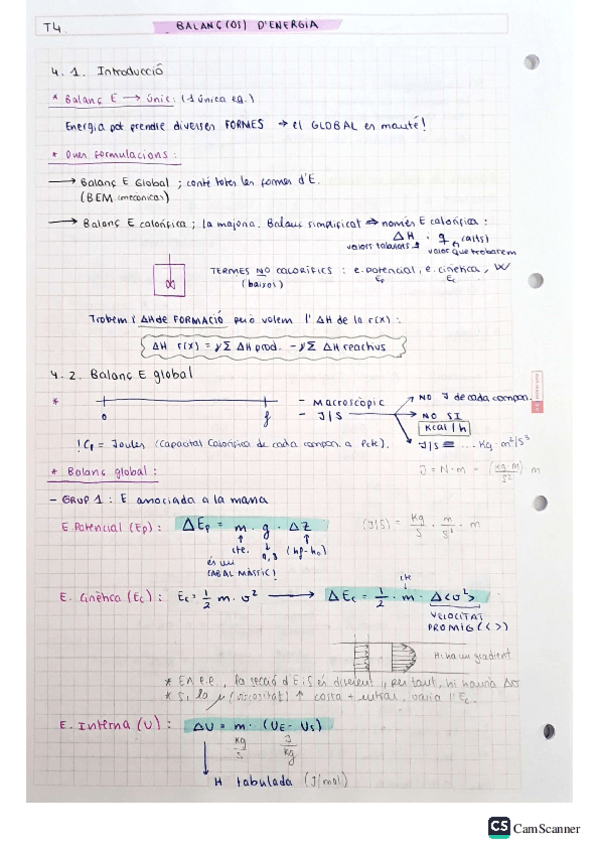 T4. BALANÇ(OS) D'ENERGIA
4.1. Introducció
* Balanç E → únic: (1 única eq.)
Energia pot prendre diverses FORMES → el GLOBAL es manté!
* Dues formulacions:
→ Balanç E Global ; conté totes les formes d'E.
(BEM mecànicas)
→ Balanç E calorífica ; la majoria. Balanç simplificat ⇒ només E calorífica:
ΔH · q (J/s)
valors tabulats valor que trobarem
TERMES NO CALORÍFICS : e. potencial, e. cinètica, W
(baixos) Ep Ec
Trobem: ΔH de FORMACIÓ però volem l'ΔH de la r(x):
ΔH r(x) = γΣ ΔH prod. - γΣ ΔH reactius
4.2. Balanç E global
* 0 f
- Macroscòpic
- J/S
NO J de cada compon.
NO SI
Kcal/h
J/S ≡ ... Kg·m²/s³
! Cp = Joules (Capacitat Calorífica de cada compon. a P cte).
J = N·m = (Kg·m/s²) m
* Balanç global:
- GRUP 1 : E associada a la massa
E. Potencial (Ep): ΔEp = m · g · ΔZ
(J/S) = Kg/s · m/s² · m
cte. 9,8 (hf-h0)
és un
CABAL MÀSSIC!
E. Cinètica (Ec): Ec = 1/2 m·v² → ΔEc = 1/2 · m · Δ<v²>
cte
VELOCITAT
PROMIG (<>)
Hi ha un gradient
* En e.e., la secció d'E i S és diferent, per tant, hi haurà Δv
* Si la μ (viscositat) ↑ costa + entrar, varia l'Ec.
E. Interna (U): ΔU = m · (UE - US)
Kg/s J/Kg
H tabulada (J/mol)
CS CamScanner